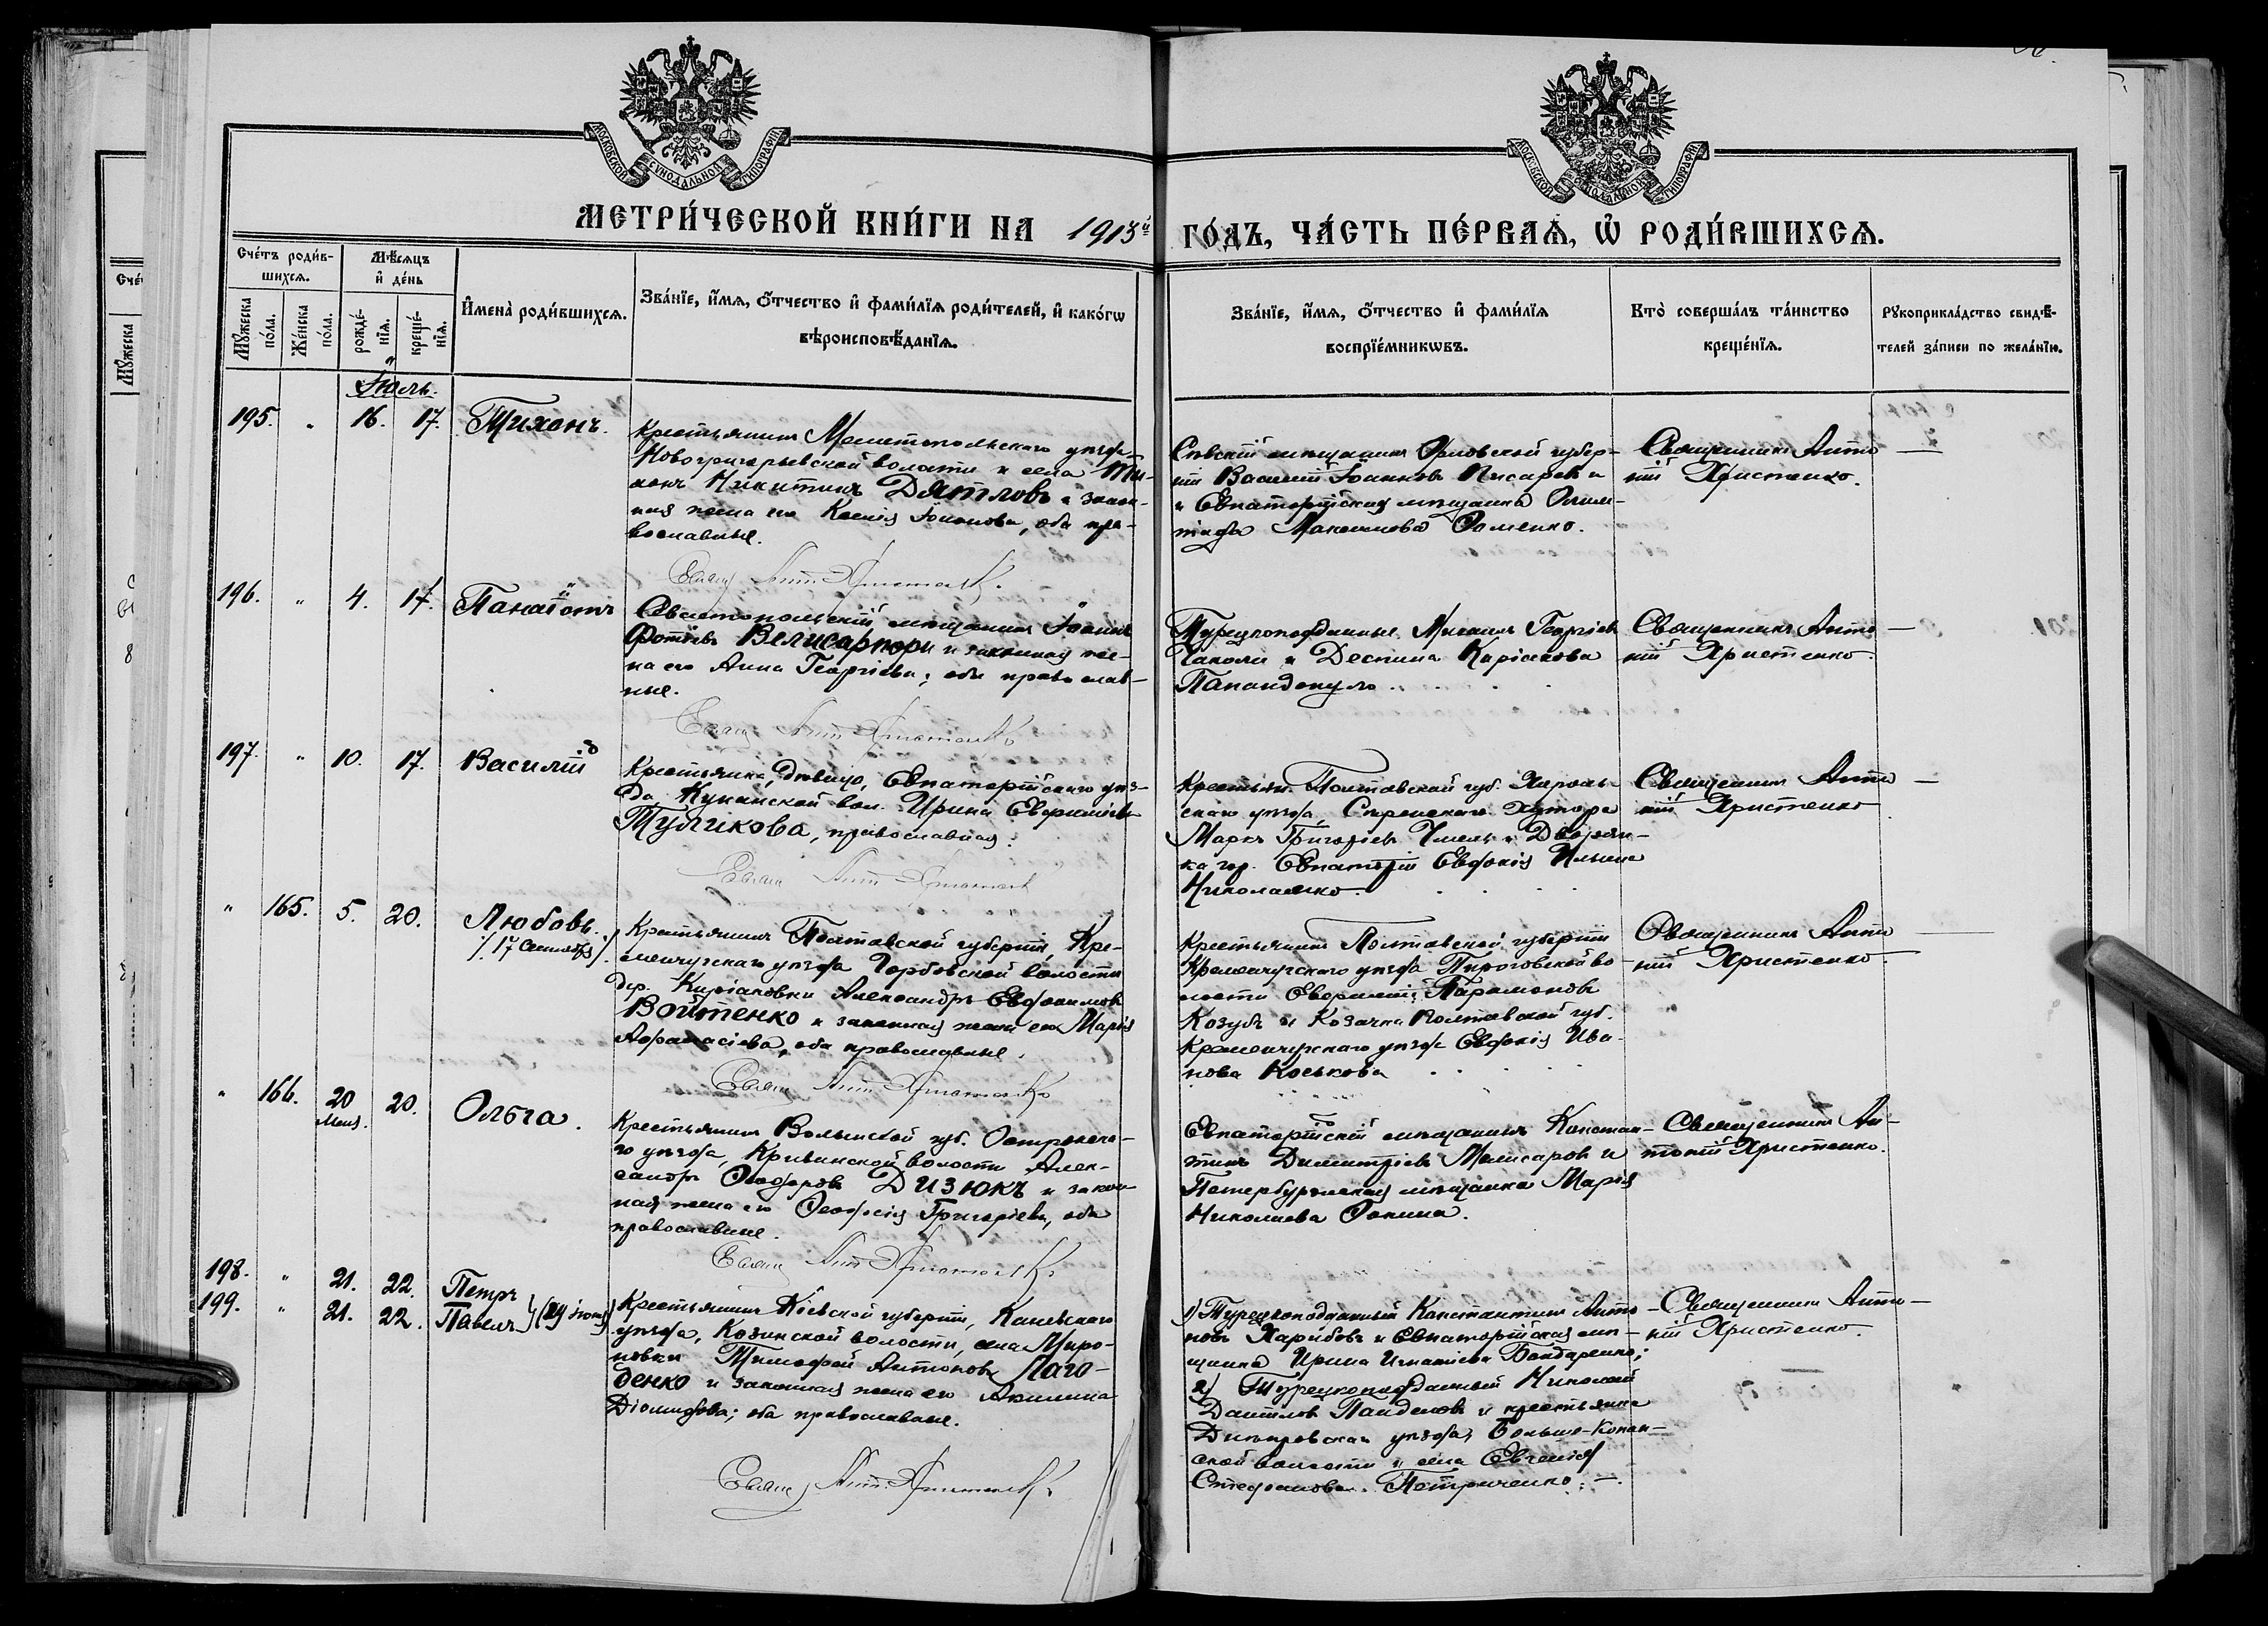 МОСКОВСКОЙ СУНОДАЛЬНОЙ ТИПОГРАФІИ
МОСКОВСКОЙ СУНОДАЛЬНОЙ ТИПОГРАФІИ
МЕТРИ́ЧЕСКОЙ КНИ́ГИ НА 1913й ГО́ДЪ, ЧА́СТЬ ПЕ́РВАѦ, Ѡ҆ РОДИ́ВШИХСѦ.
Сче́тъ роди́в-
шихсѧ.
Мѣ́сѧцъ
и҆ де́нь
Мꙋ́жеска
по́ла.
Же́нска
по́ла.
рожде́-
нїѧ.
креще́-
нїѧ.
И҆мена̀ роди́вшихсѧ.
Зва́нїе, и҆́мѧ, ѻ҆́тчество и҆ фами́лїѧ роди́телей, и҆ како́гѡ
вѣроисповѣ́данїѧ.
Зва́нїе, и҆́мѧ, ѻ҆́тчество и҆ фами́лїѧ
воспрїе́мникѡвъ.
Кто̀ соверша́лъ та́инство
креще́нїѧ.
Рꙋкоприкла́дство свидѣ́-
телей за́писи по жела́нїю.
Іюль.
195. " 16. 17. Тихонъ.
Крестьянинъ Мелитопольскаго уѣзда
Новогригорьевской волости и села Ти-
хонъ Никитинъ Дятловъ и закон-
ная жена его Ксенія Іоанова, оба пра-
вославные.
Сѣвскій мѣщанинъ Орловской губер-
ніи Василій Іоанновъ Писаревъ и
Евпаторійская мѣщанка Олим-
піада Максимова Фоменко.
Священникъ Анто
ній Христенко.
196. " 4. 17. Панаіотъ
Севастопольскій мѣщанинъ Іоаннъ
Фотіевъ Велисариори и законная же-
на его Анна Георгіева; оба православ-
ные.
Турецкоподданные Михаилъ Георгіевъ
и Деспина Киріакова
Папандопуло
Священникъ Анто
ній Христенко.
197. " 10. 17. Василій
Крестьянка, дѣвица, Евпаторійскаго уѣз-
да Кунанской вол. Ирина Евфиміева
Туликова, православная.
Крестьян. Полтавской губ. Хороль-
скаго уѣзда, хутора
Маркъ Григоріевъ и Дворян-
ка гор. Евпаторіи Евдокія Ильина
Николаенко.
Священникъ Анто
ній Христенко
" 165. 5. 20. Любовь.
/17 Сентября/
Крестьянинъ Полтавской губерніи, Кре-
менчугскаго уѣзда Горбовской волости
дер. Киріаковки Александръ Евдокимовъ
Войтенко и законная жена его Марія
Афанасіева, оба православные.
Крестьянинъ Полтавской губерніи
Кременчугскаго уѣзда Пироговской во
лости Евфимій Парамоновъ
Козубъ и Козачка Полтавской губ.
Кременчугскаго уѣзда Евдокія Ива-
нова Коськова
Священникъ Анто
ній Христенко.
" 166. 20 Мая. 20. Ольга.
Крестьянинъ Волынской губ. Острожска-
го уѣзда, Кривинской волости Алек-
сандръ Ѳеодоровъ Дизюкъ и закон-
ная жена его Ѳеодосія Григоріева, оба
православные.
Евпаторійскій мѣщанинъ Констан-
тинъ Димитріевъ Мелисаровъ и
Петербургская мѣщанка Марія
Николаева Фокина.
Священникъ Ан-
тоній Христенко.
198. " 21. 22. Петръ
199. " 21. 22. Павелъ (29 іюня)
Крестьянинъ Кіевской губерніи, Каневскаго
уѣзда, Козинской волости, села Миро-
новки Тимофей Антоновъ Лаго-
денко и законная жена его Акилина
Діомидова; оба православные.
1) Турецкоподданный Константинъ Анто-
новъ Харибовъ и Евпаторійская мѣ-
щанка Ирина Игнатіева Бондаренко;
2) Турецкоподданный Николай
Даниловъ Панделовъ и крестьянка
Днѣпровскаго уѣзда, Больше-Копан-
ской волости и села Евгенія
Стефанова Петриченко.
Священникъ Анто-
ній Христенко.